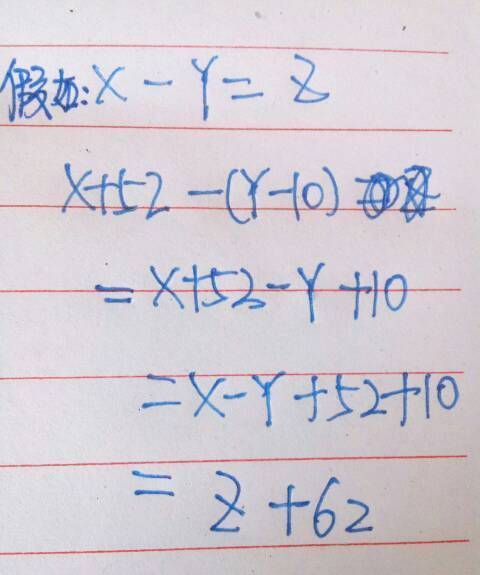 假如:X-Y=Z
X+52-(Y-10)
=X+52-Y+10
=X-Y+52+10
=Z+62